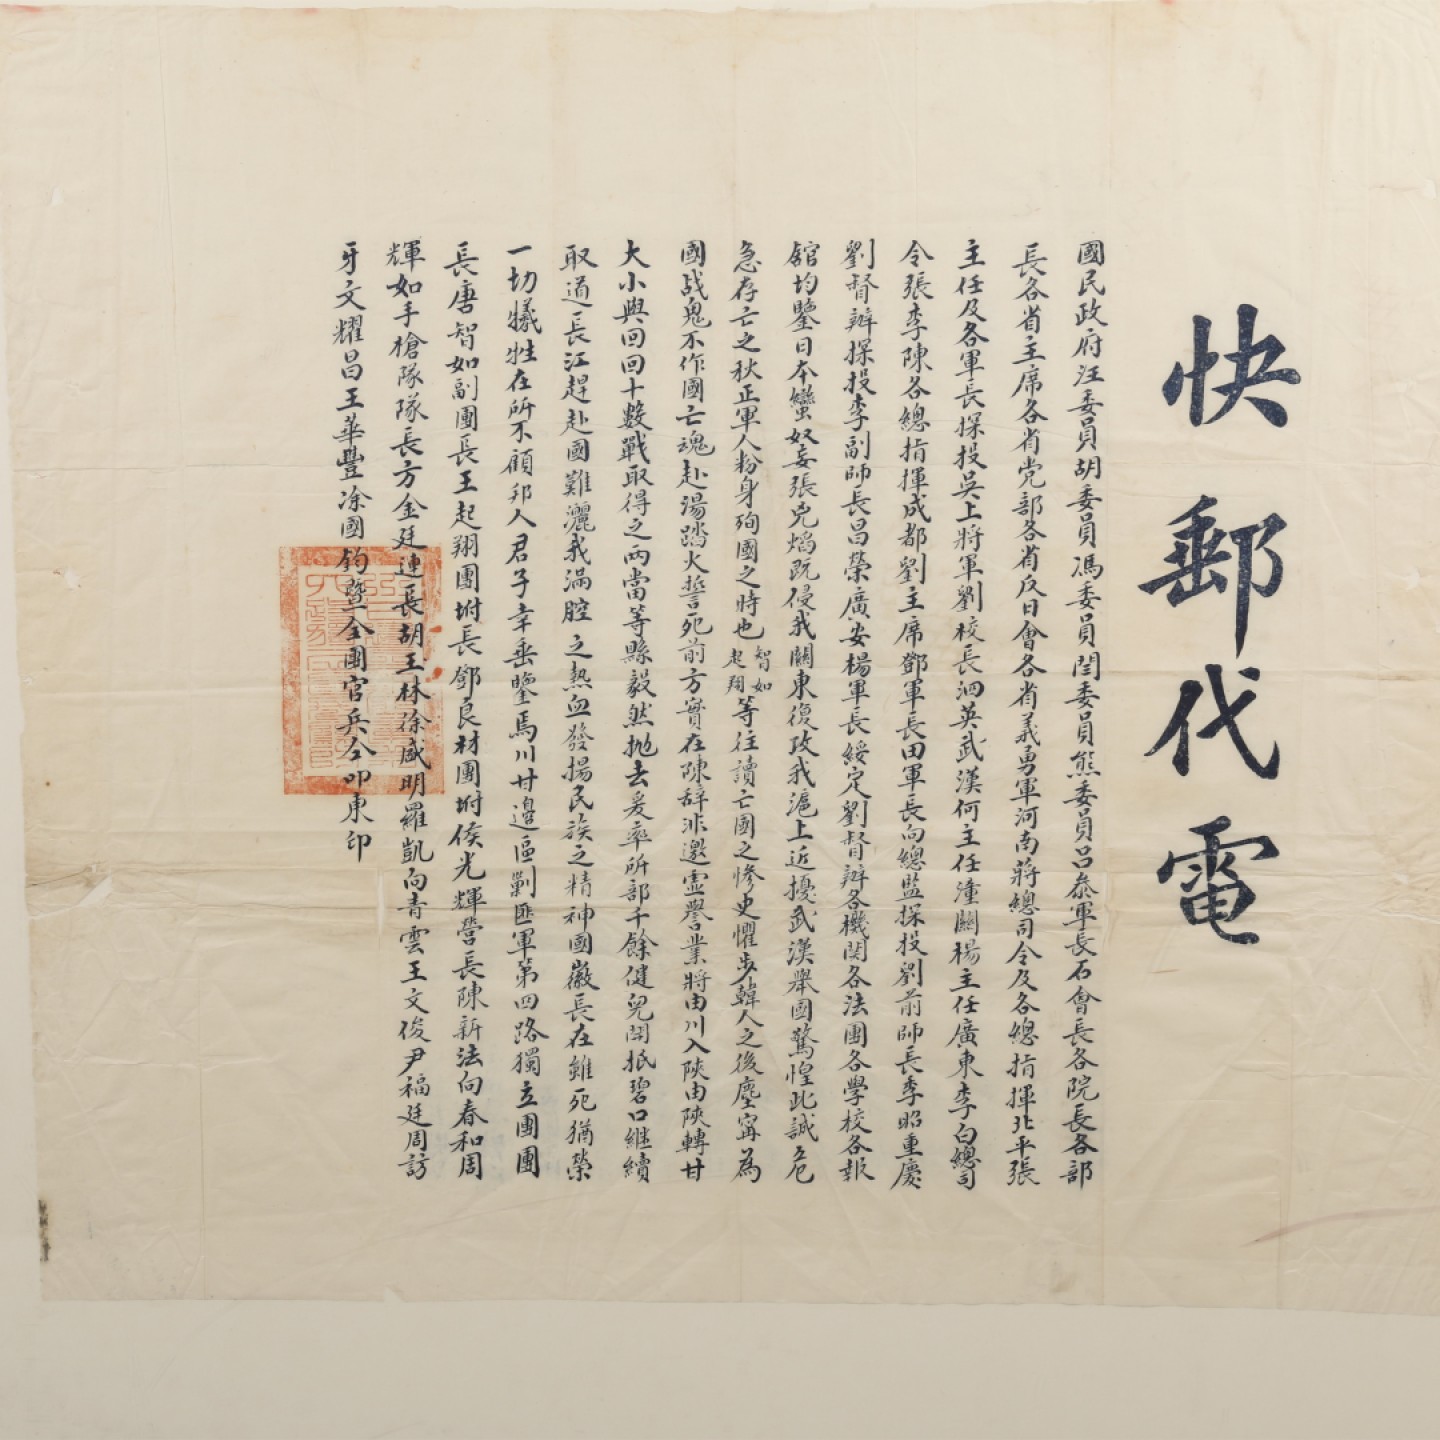 快郵代電
國民政府汪委員胡委員馮委員閻委員熊委員呂叅軍長石會長各院長各部
長各省主席各省党部各省反日會各省義勇軍河南蔣總司令及各總指揮北平張
主任及各軍長探投吳上將軍劉校長泗英武漢何主任潼關楊主任廣東李白總司
令張李陳各總指揮成都劉主席鄧軍長田軍長向總監探投劉前師長李昭重慶
劉督辦探投李副師長昌榮廣安楊軍長綏定劉督辦各機関各法團各學校各報
舘均鑒日本蠻奴妄張兇焰既侵我關東復攻我滬上近擾武漢舉國驚惶此誠危
急存亡之秋正軍人粉身殉國之時也智如起翔等往讀亡國之慘史懼步韓人之後塵寗為
國战鬼不作國亡魂赴湯踏火誓死前方實在陳辞非邀虛譽業將由川入陝由陝轉甘
大小與回回十數戰取得之两當等縣毅然抛去爰率所部千餘健兒開抵碧口継續
取道長江趕赴國難灑我滿腔之熱血發揚民族之精神國徽長在雖死猶榮
一切犧牲在所不顧邦人君子幸垂鑒焉川甘邊區剿匪軍第四路獨立團團
長唐智如副團長王起翔團坿長鄧良材團坿侯光輝營長陳新法向春和周
輝如手槍隊隊長方金廷連長胡玉林徐盛明羅凱向青雲王文俊尹福廷周訪
牙文耀昌王華豐凃國鈞暨全團官兵仝叩東印